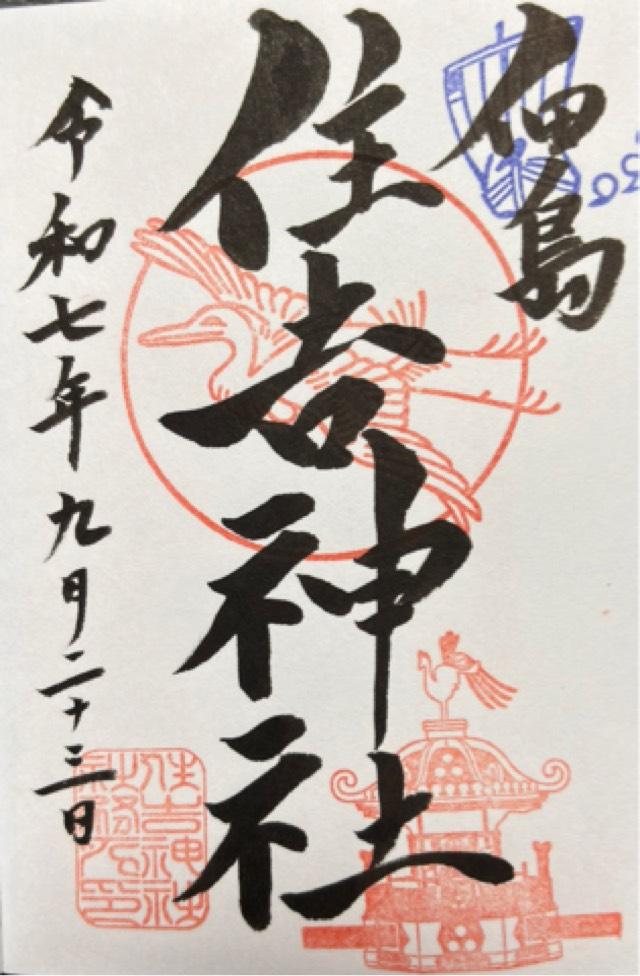 佃島
住吉神社
令和七年九月二十三日
住吉神社